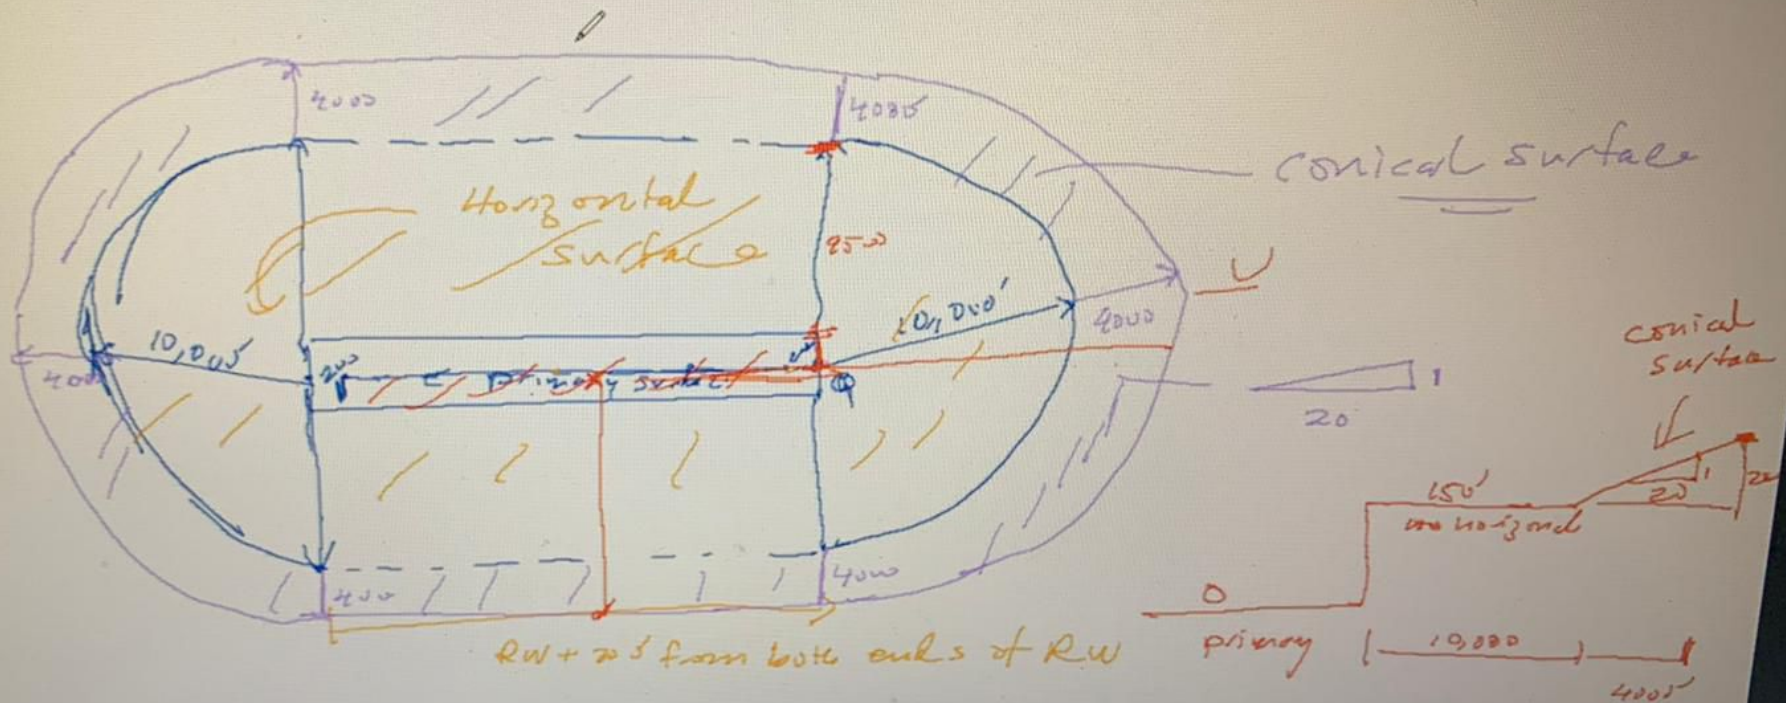 4000
4000'
conical surface
Horizontal
surface
9500
10,000'
10,000'
4000
400
200
Primary surface
conical
surface
1
20
150'
20
1
horizontal
400
4000
0
primary
10,000
4000'
RW + 200' from both ends of RW